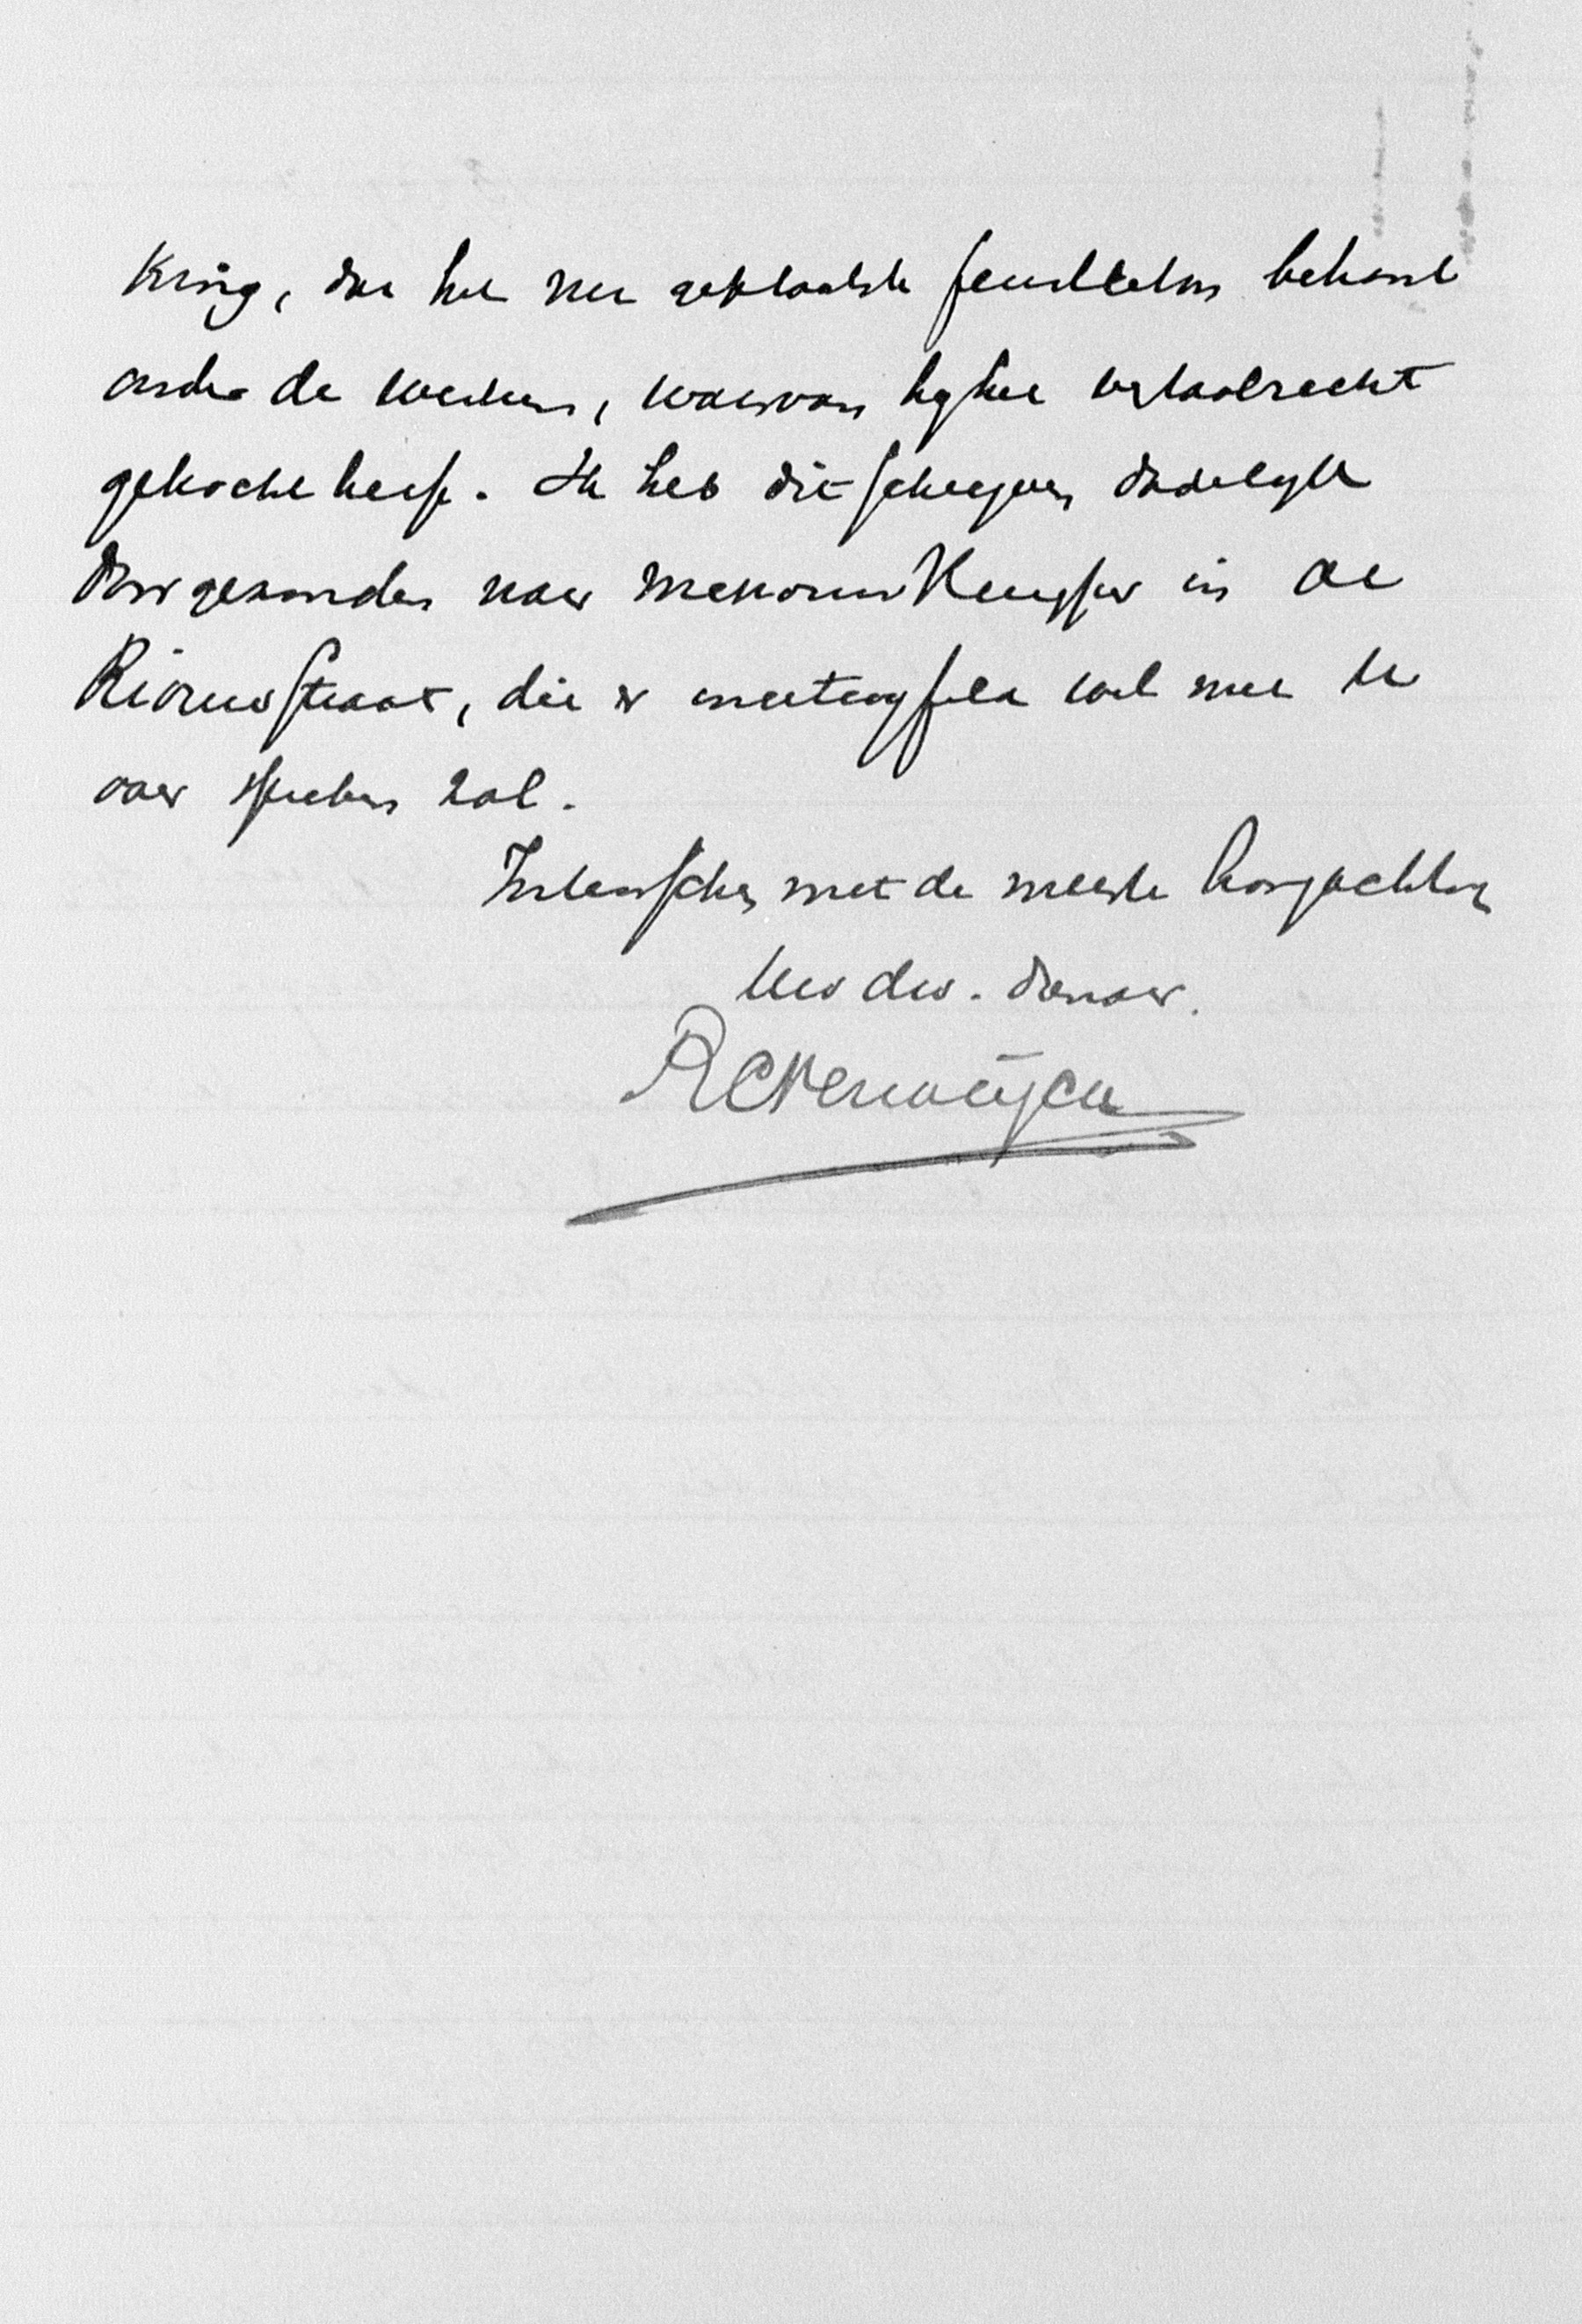 king, dat het nu geplaatste feuilleton behoort
onder de werken, waarvan hij het vertaalrecht
gekocht heeft. Ik heb dit schrijven dadelijk
doorgezonden naar Mevrouw in de
Riouwstraat, die er ongetwijfeld wel met U
over spreken zal.
Intusschen met de meeste hoogachting
Uw dw. dienaar.